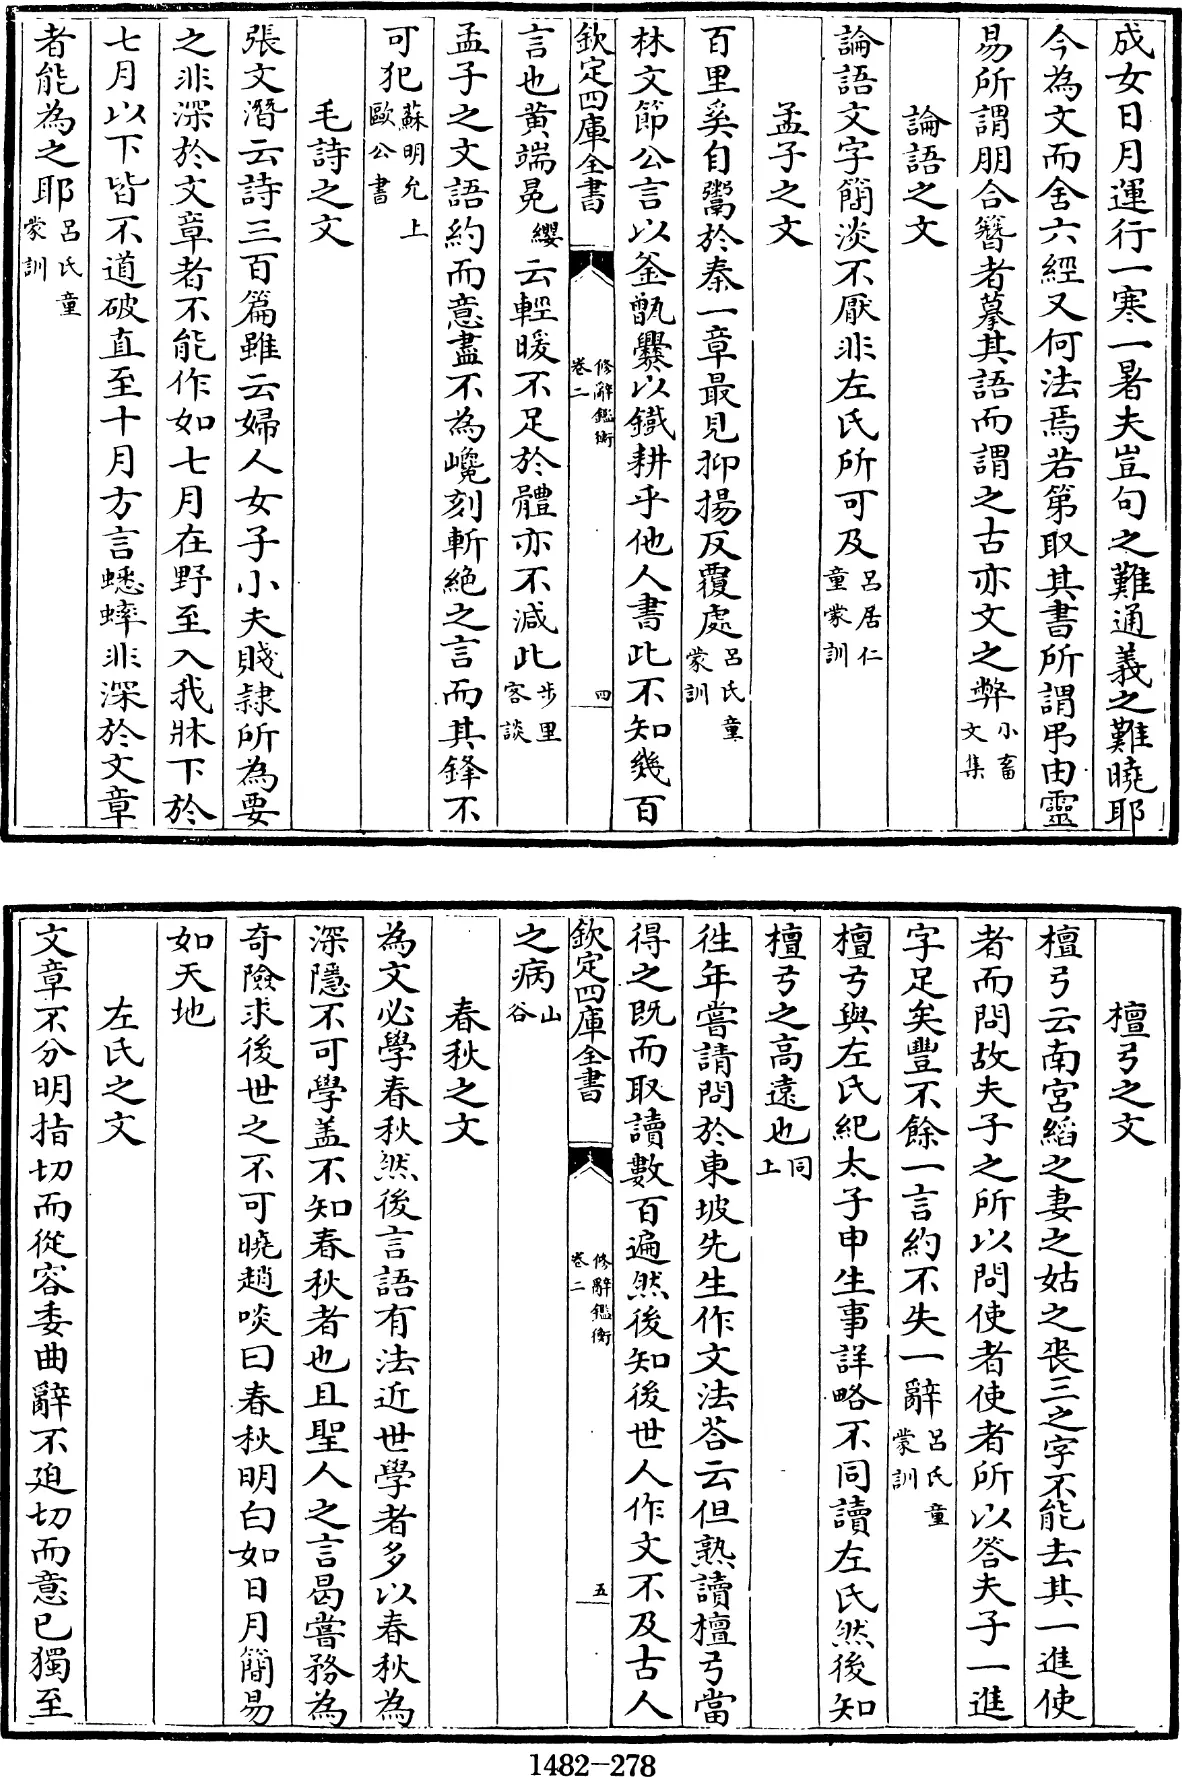 成女日月運行一寒一暑夫豈句之難通義之難曉耶
今為文而舍六經又何法焉若第取其書所謂弔由靈
易所謂朋合簪者摹其語而謂之古亦文之弊小畜文集
論語之文
論語文字簡淡不厭非左氏所可及呂居仁童蒙訓
孟子之文
百里奚自鬻於秦一章最見抑揚反覆處呂氏童蒙訓
林文節公言以釜甑爨以鐵耕乎他人書此不知幾百
欽定四庫全書 修辭鑑衡卷二 四
言也黄端冕纓云輕暖不足於體亦不減此步里客談
孟子之文語約而意盡不為巉刻斬絶之言而其鋒不
可犯蘇明允上歐公書
毛詩之文
張文潛云詩三百篇雖云婦人女子小夫賤隸所為要
之非深於文章者不能作如七月在野至入我牀下於
七月以下皆不道破直至十月方言蟋蟀非深於文章
者能為之耶呂氏童蒙訓
檀弓之文
檀弓云南宫縚之妻之姑之喪三之字不能去其一進使
者而問故夫子之所以問使者使者所以答夫子一進
字足矣豐不餘一言約不失一辭呂氏童蒙訓
檀弓與左氏紀太子申生事詳略不同讀左氏然後知
檀弓之高遠也同上
徃年嘗請問於東坡先生作文法荅云但熟讀檀弓當
得之既而取讀數百遍然後知後世人作文不及古人
欽定四庫全書 修辭鑑衡卷二 五
之病山谷
春秋之文
為文必學春秋然後言語有法近世學者多以春秋為
深隱不可學盖不知春秋者也且聖人之言曷嘗務為
奇險求後世之不可曉趙啖曰春秋明白如日月簡易
如天地
左氏之文
文章不分明指切而從容委曲辭不迫切而意已獨至
1482-278